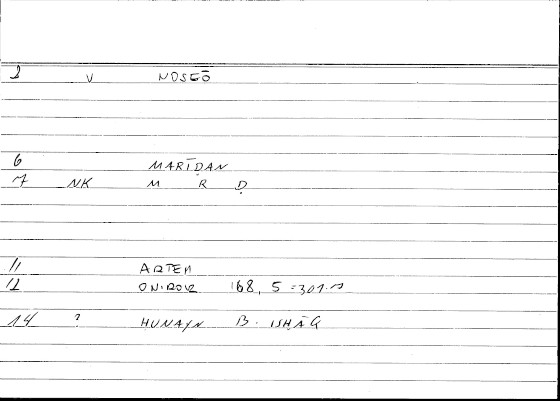 1 V NOSEŌ
6 MARĪḌAN
7 NK M R Ḍ
11 ARTEM
12 ONIROK 168, 5 = 301.
14 ? HUNAYN B. ISḤĀQ